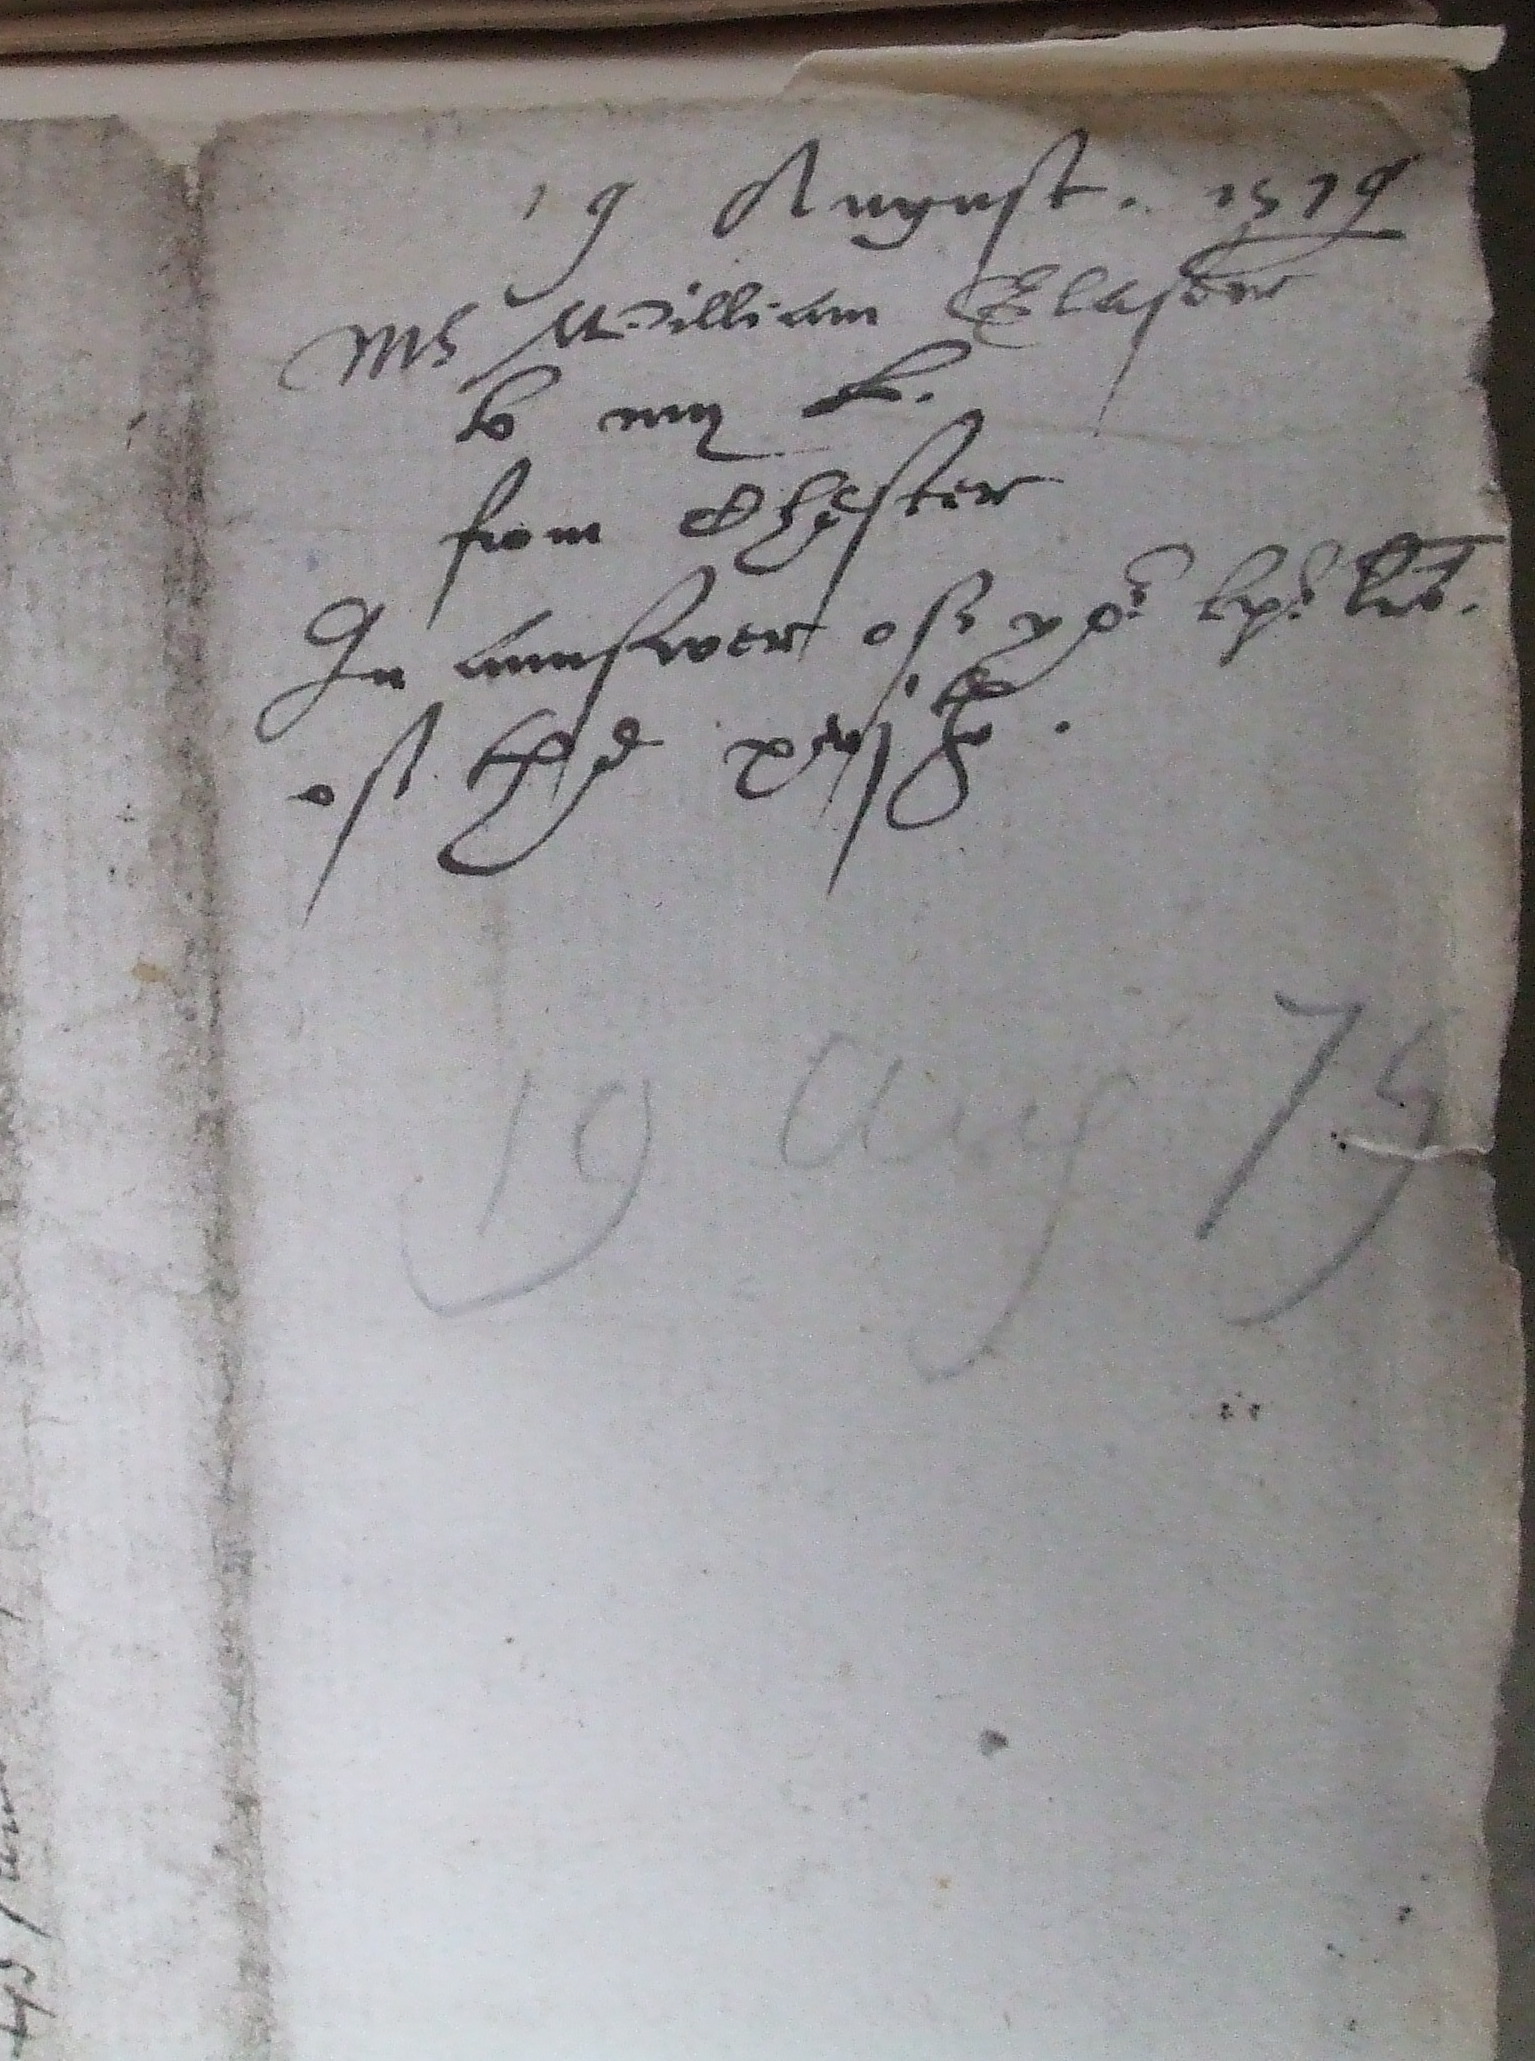 19 August. 1579
Mr William Glaseor
to my L.
from Chester
In aunswer of yor lps lres.
of the
19 Aug 79